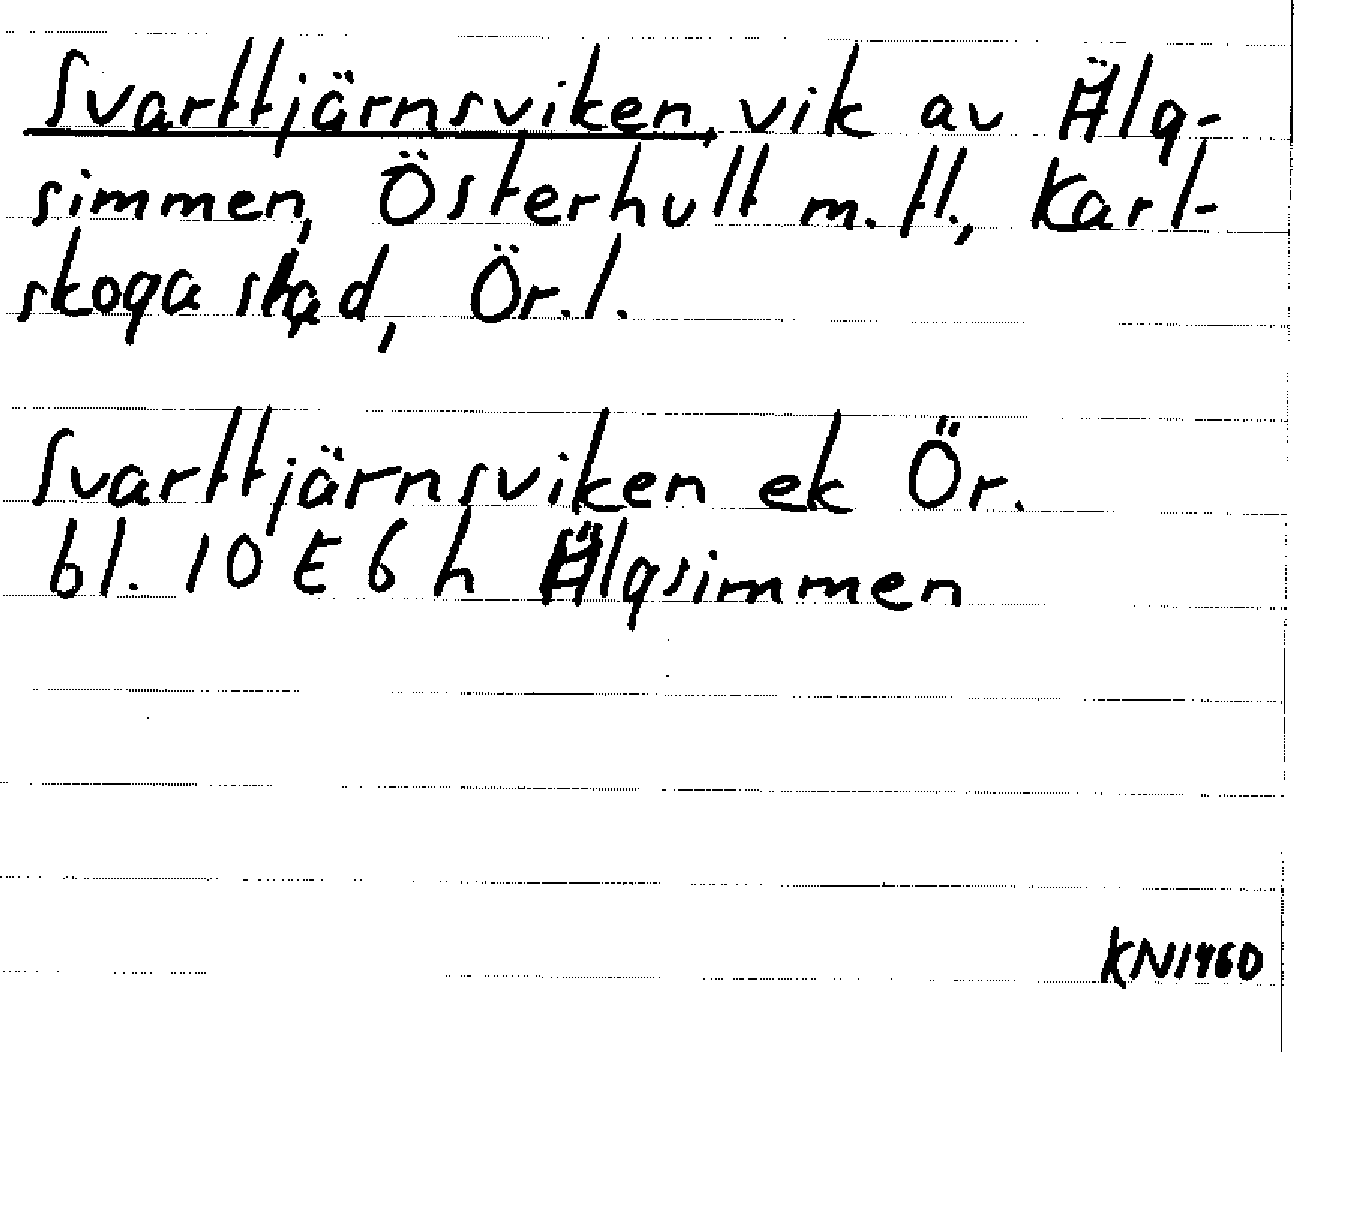 Svarttjärnsviken, vik av Älg-
simmen, Österhult m.fl., Karl-
skoga stad, Ör.l.
Svarttjärnsviken ek Ör.
bl. 10 E 6 h Älgsimmen
KN1960